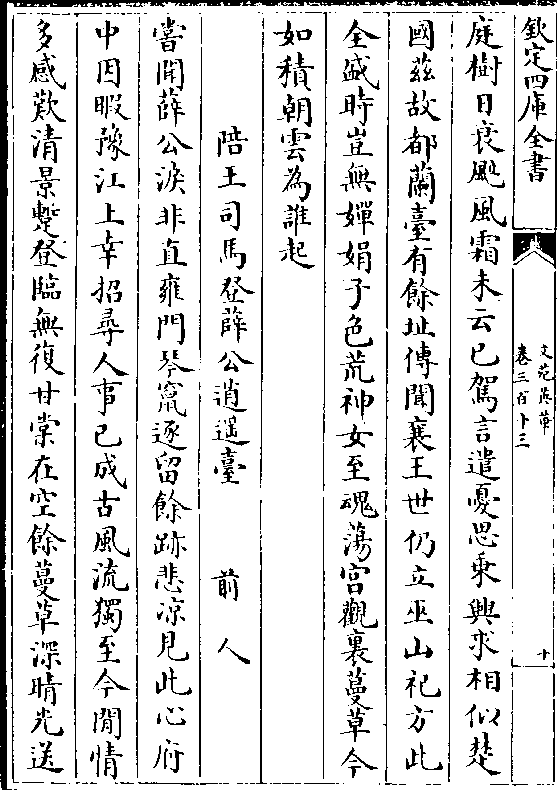 欽定四庫全書
文苑英華
卷三百十三
十
庭樹日衰颷風霜未云已駕言遣憂思乘興求相似楚
國茲故都蘭臺有餘址傳聞襄王世仍立巫山祀方此
全盛時豈無嬋娟子色荒神女至魂蕩宮觀裏蔓草今
如積朝雲為誰起
陪王司馬登薛公逍遥臺 前人
嘗聞薛公淚非直雍門琴竄逐留餘跡悲涼見此心府
中因暇豫江上幸招尋人事已成古風流獨至今閒情
多感歎清景蹔登臨無復甘棠在空餘蔓草深晴光送